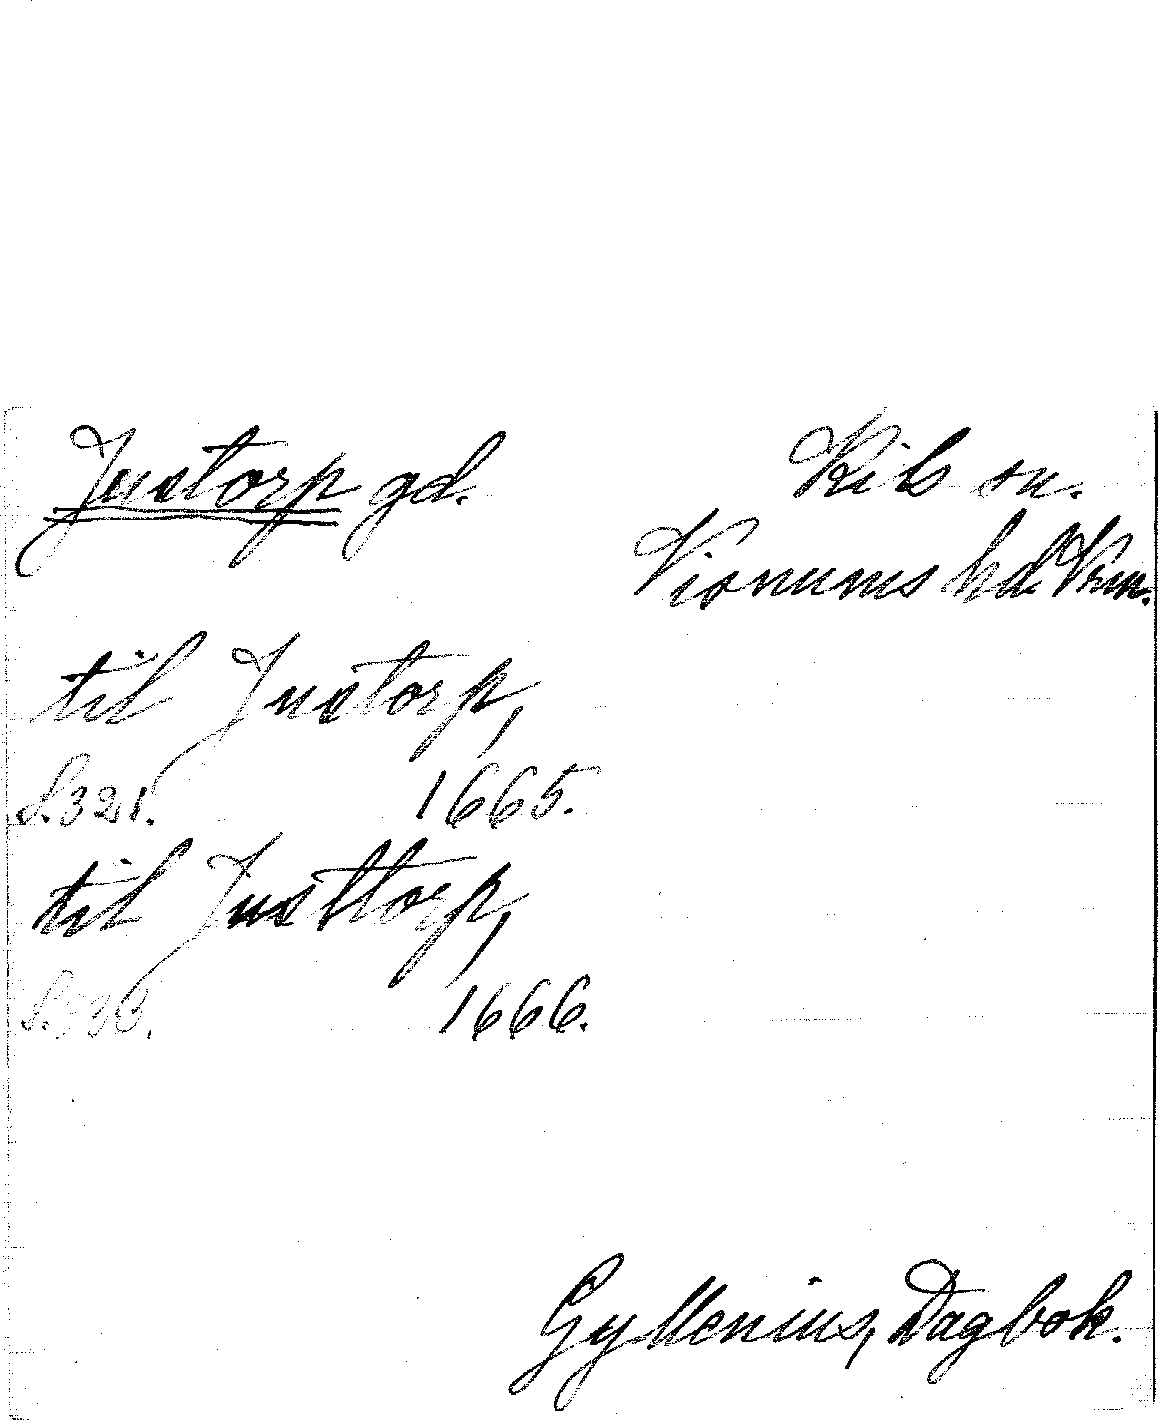 Justorp gd. Kils sn.
Visnums hd Vrm.
til Justorp,
S.321. 1665.
til Justtorp,
S.333. 1666.
Gyllenius, Dagbok.